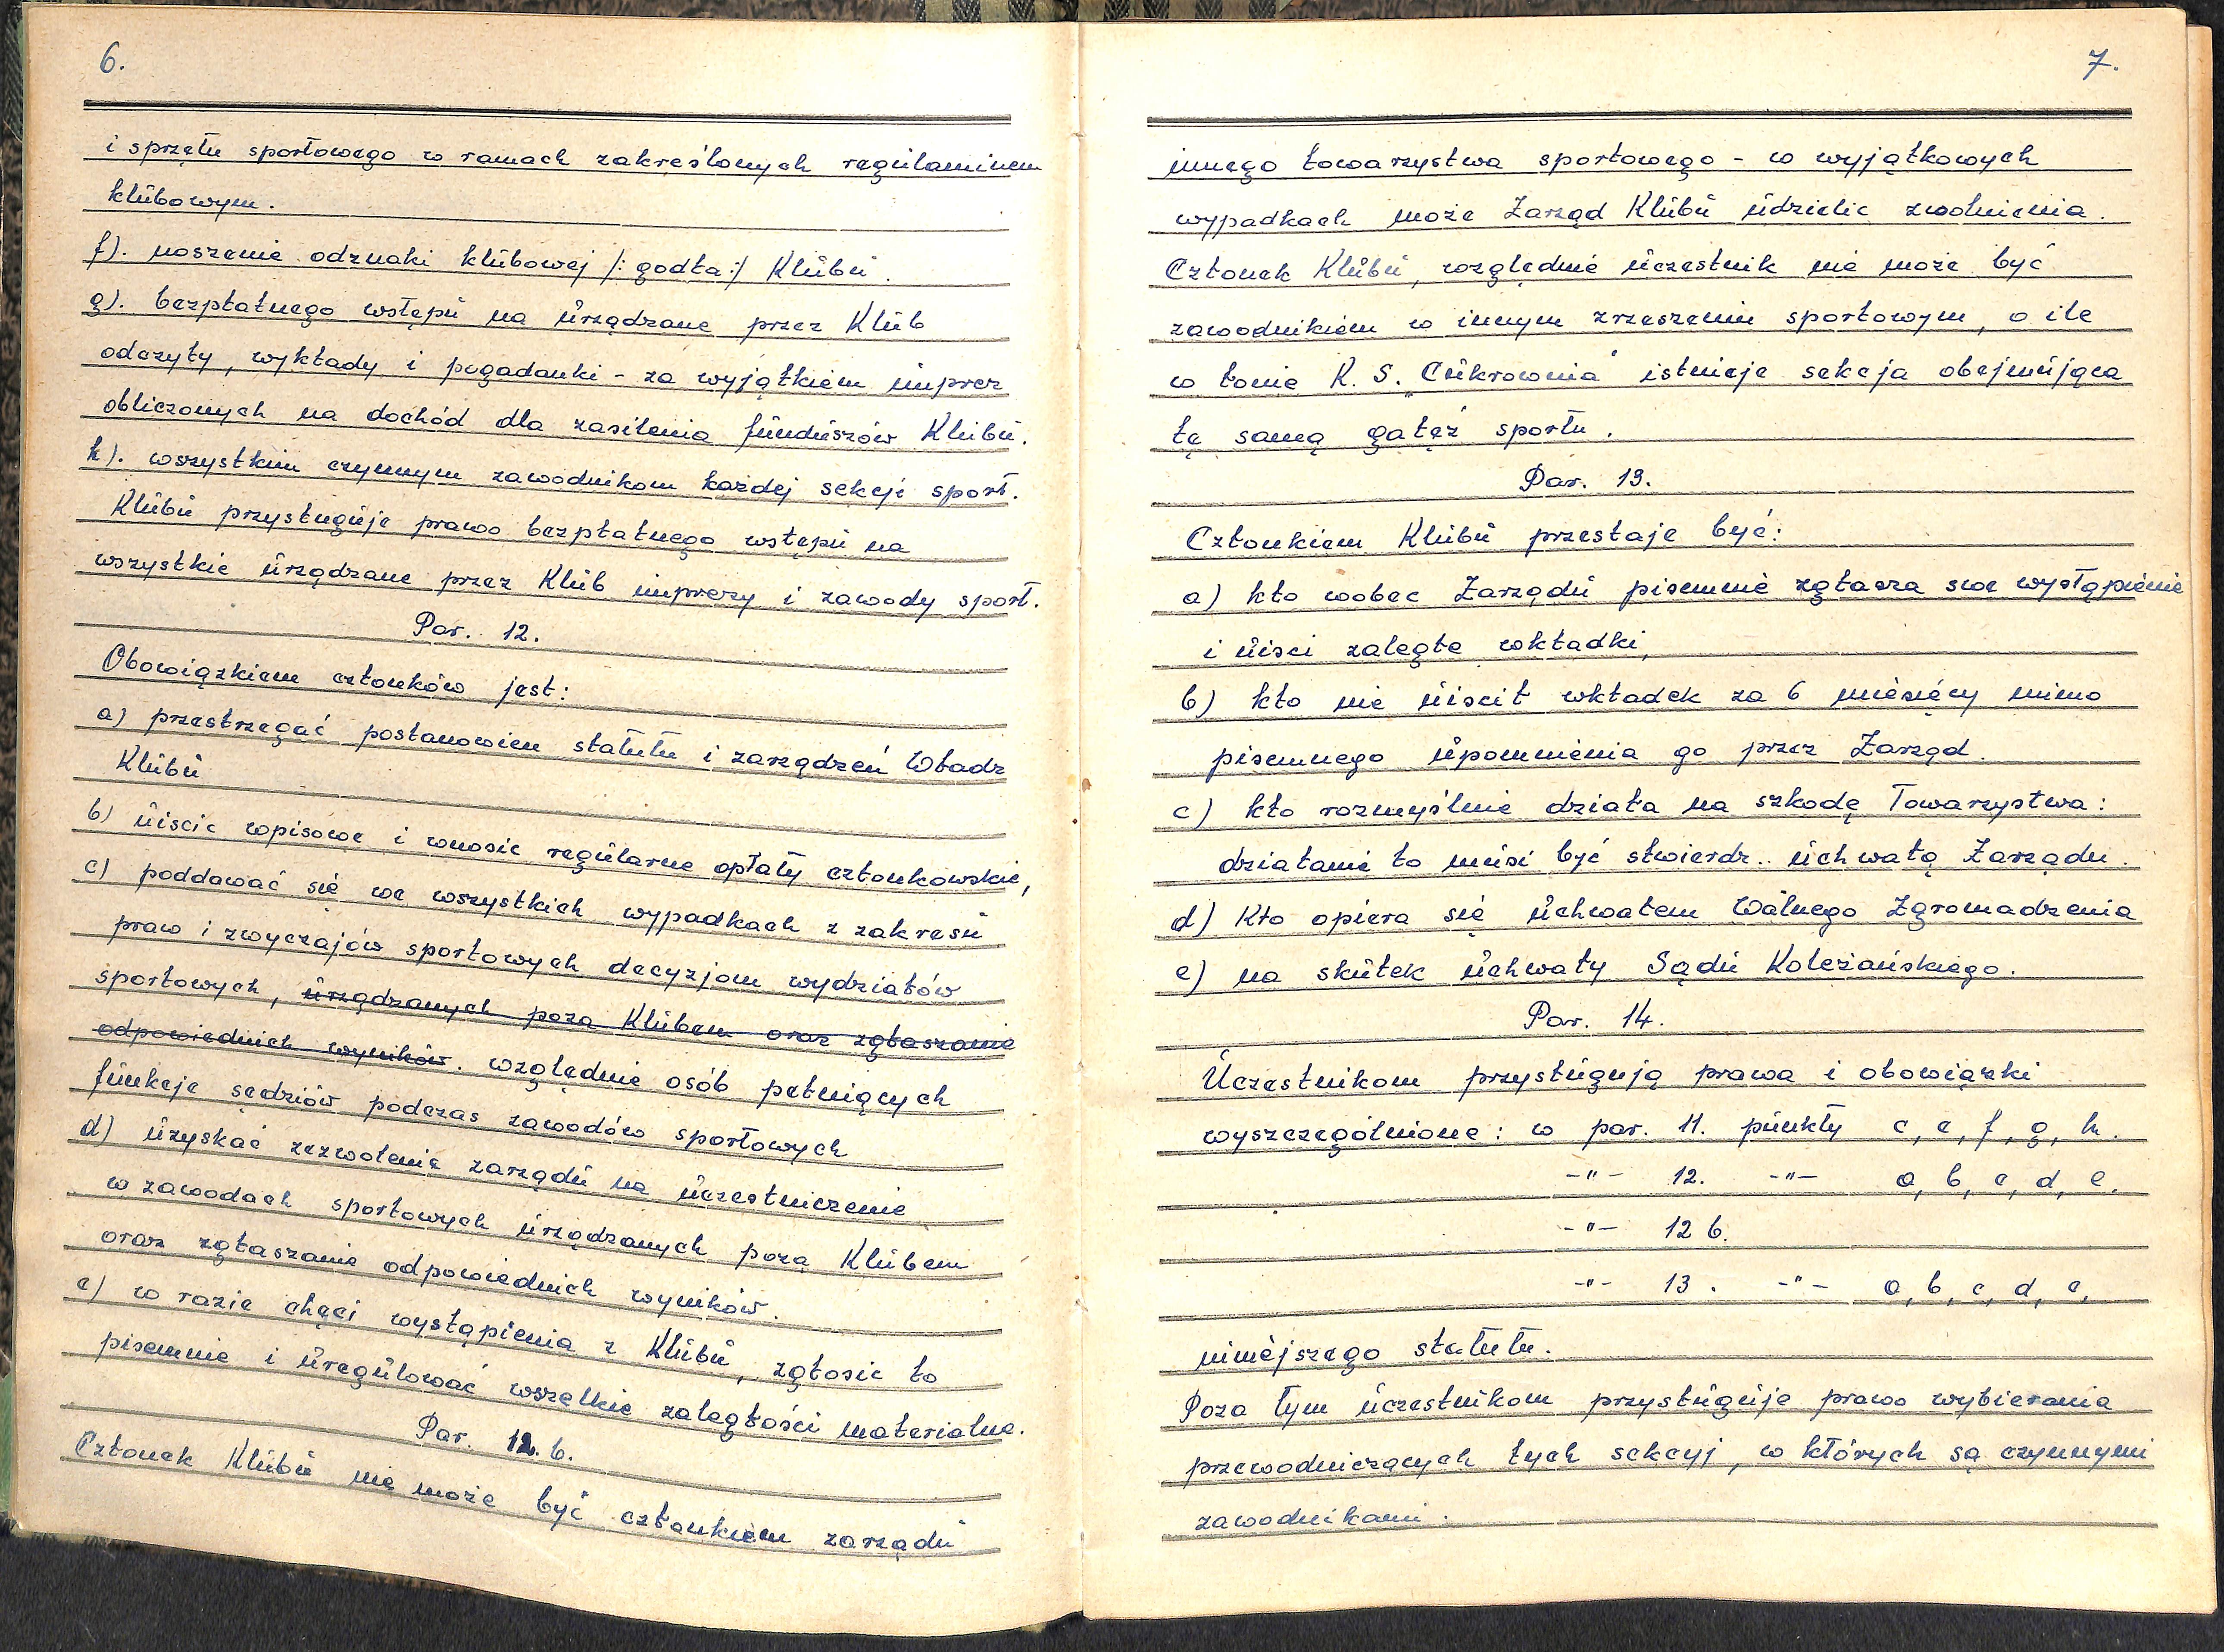 6.
i sprzętu sportowego w ramach zakreślonych regulaminem
klubowym.
f). noszenie odznaki klubowej /: godła :/ Klubu.
g). bezpłatnego wstępu na urządzane przez Klub
odczyty, wykłady i pogadanki - za wyjątkiem imprez
obliczonych na dochód dla zasilenia funduszów Klubu.
h). wszystkim czynnym zawodnikom każdej sekcji sport.
Klubu przysługuje prawo bezpłatnego wstępu na
wszystkie urządzane przez Klub imprezy i zawody sport.
Par. 12.
Obowiązkiem członków jest:
a) przestrzegać postanowien statutu i zarządzeń Władz
Klubu
b) uiscic wpisowe i wnosic regularne opłaty członkowskie,
c) poddawać się we wszystkich wypadkach z zakresu
praw i zwyczajów sportowych decyzjom wydziałów
sportowych, urządzanych poza Klubem oraz zgłaszanie
odpowiednich wyników. względnie osób pełniących
funkcje sędziów podczas zawodów sportowych
d) uzyskać zezwolenie zarządu na uczestniczenie
w zawodach sportowych urządzanych poza Klubem
oraz zgłaszanie odpowiednich wyników.
e) w razie chęci wystąpienia z Klubu, zgłosic to
pisemnie i uregulować wszelkie zaległości materialne.
Par. 12. b.
Członek Klubu nie może być członkiem zarządu
7.
innego towarzystwa sportowego - w wyjątkowych
wypadkach może Zarząd Klubu udzielic zwolnienia.
Członek Klubu, względnie uczestnik nie może być
zawodnikiem w innym zrzeszeniu sportowym, o ile
w łonie K. S. „Cukrownia" istnieje sekcja obejmująca
tę samą gałęź sportu.
Par. 13.
Członkiem Klubu przestaje być:
a) kto wobec Zarządu pisemnie zgłasza swe wystąpienie
i uisci zaległe wkładki,
b) kto nie uiscił wkładek za 6 miesięcy mimo
pisemnego upomnienia go przez Zarząd.
c) kto rozmyślnie działa na szkodę Towarzystwa:
działanie to musi być stwierdz.. uchwałą Zarządu.
d) Kto opiera się uchwałem Walnego Zgromadzenia
e) na skutek uchwały Sądu Koleżańskiego.
Par. 14.
Uczestnikom przysługują prawa i obowiązki
wyszczególnione: w par. 11. punkty c, e, f, g, h.
-"- 12. -"- a, b, c, d, e.
-"- 12 b.
-"- 13. -"- a, b, c, d, e,
niniejszego statutu.
Poza tym uczestnikom przysługuje prawo wybierania
przewodniczących tych sekcyj, w których są czynnymi
zawodnikami.